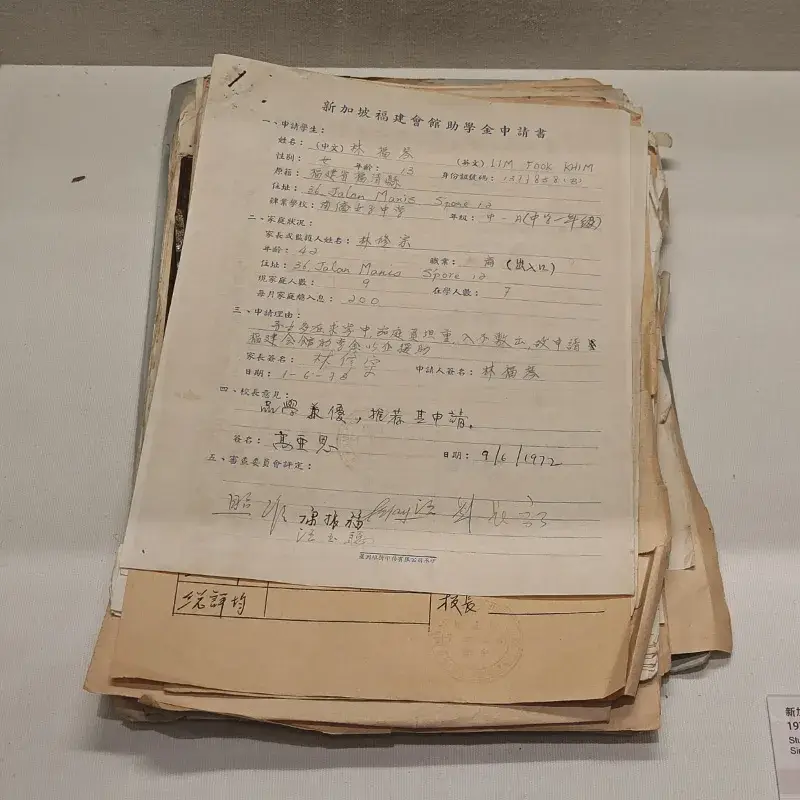 新加坡福建會館助學金申請書
一、申請學生：
姓名：(中文) 林福琴 (英文) LIM FOOK KHIM
性別： 女 年齡： 13 身份證號碼：
原籍： 福建省福清縣
住址： 36, Jalan Manis Spore 12
肄業學校： 南僑女子中學 年級： 中一A(中學一年級)
二、家庭狀況：
家長或監護人姓名： 林
年齡： 42 職業： 商 (出入口)
住址： 36, Jalan Manis Spore 12
現家庭人數： 9 在學人數： 7
每月家庭總入息： 200
三、申請理由：
子女多在求学中，家庭負担重，入不敷出，故申請
福建会館助学金以
家長簽名： 林 申請人簽名： 林福琴
日期： 1-6-72
四、校長意見：
品學兼優，推荐其申請。
簽名： 高亜思 日期： 9/6/1972
五、審查委員會評定：
總評均
校長
新加
197
Stu
Sin